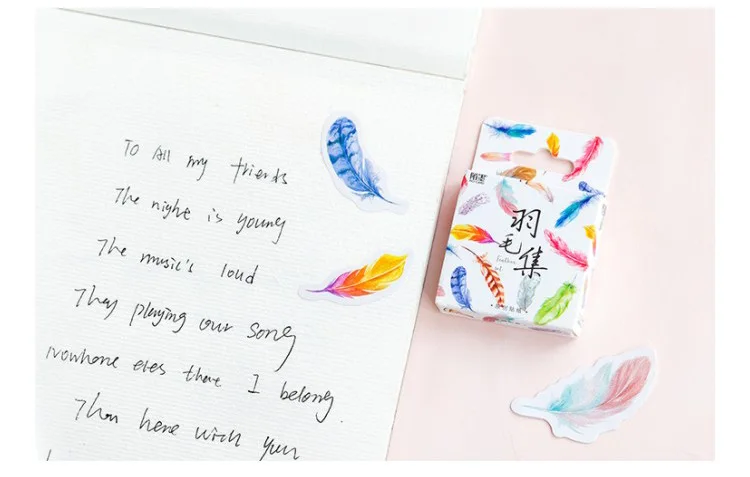 To All my friends
The night is young
The music's loud
They playing our song
Nowhere eles there I belong.
Than here with you
羽毛集
feather